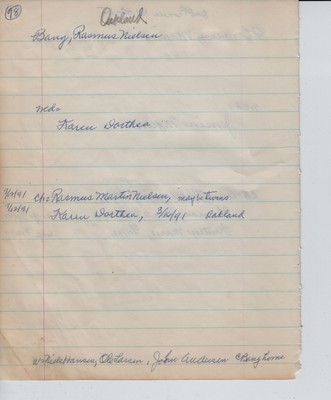 98
Oakland
Bang, Rasmus Nielsen
wed-
Karen Dorthea
ch- Rasmus Martin Nielsen, maybe twins
Karen Dorthea, 3/10/91 Oakland
Hansen, Ole Larsen, John Andersen @ Bang home